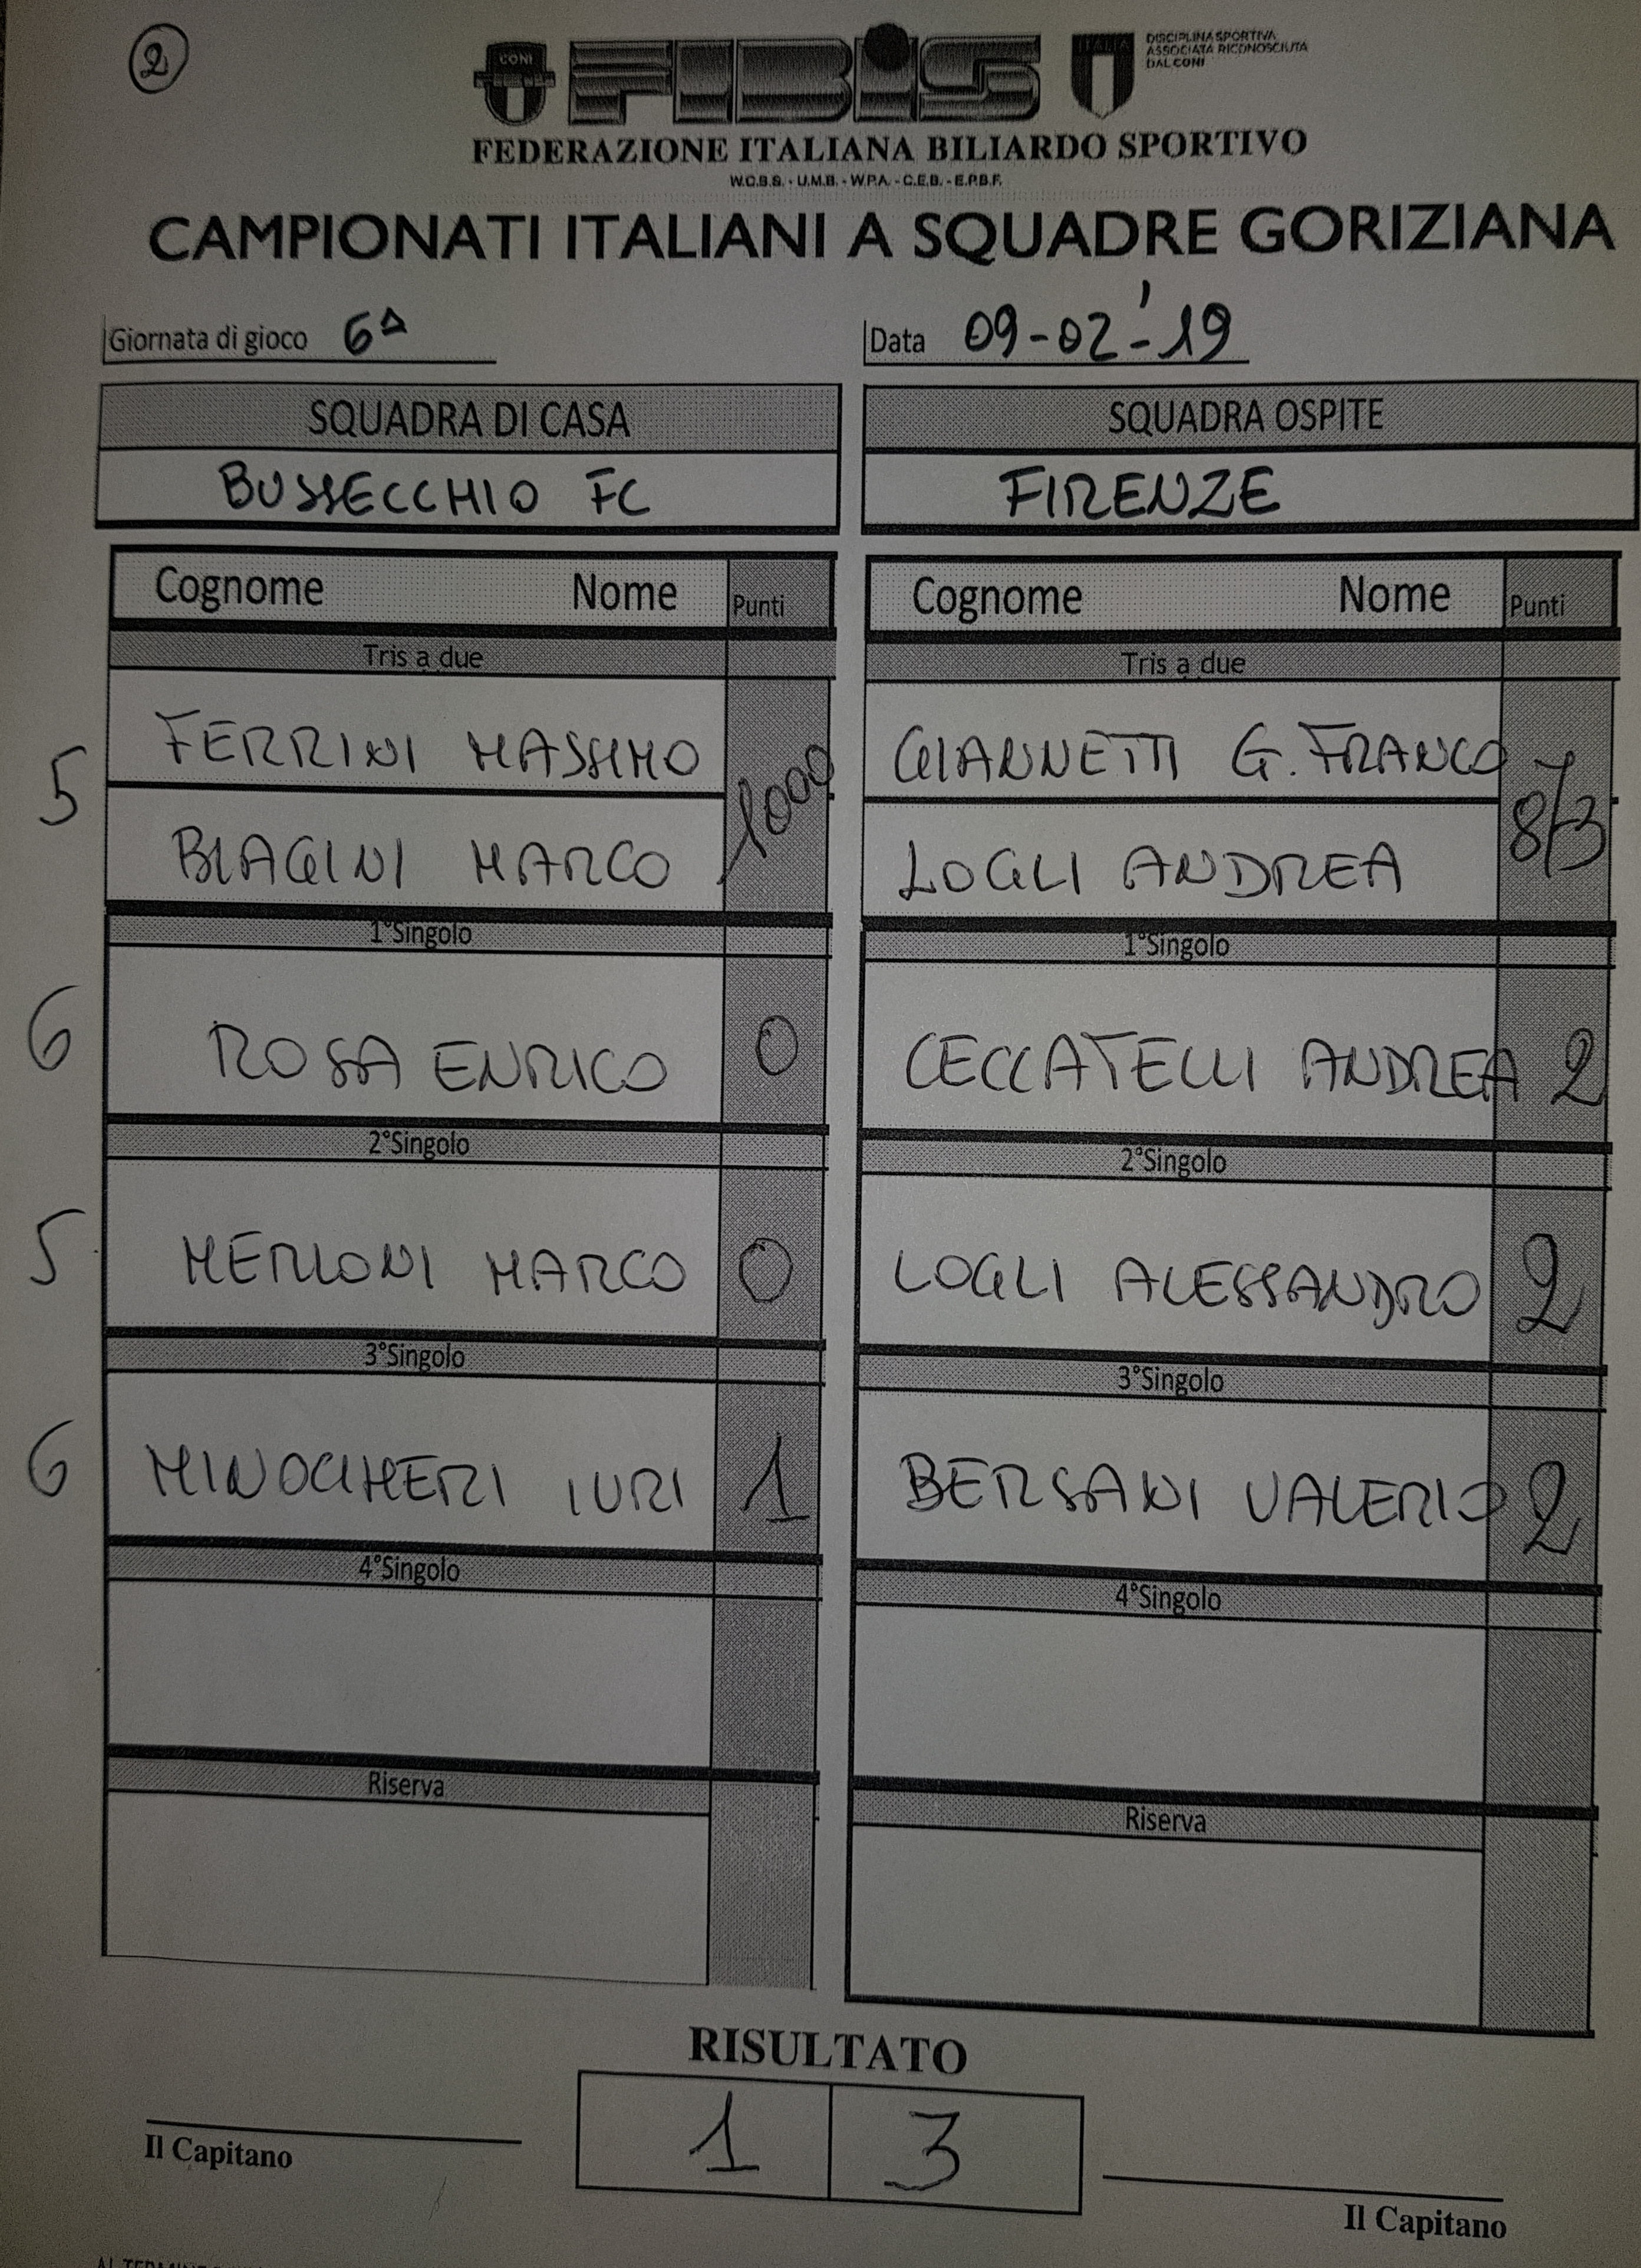 2
CONI
FIBiS
ITALIA
DISCIPLINA SPORTIVA
ASSOCIATA RICONOSCIUTA
DAL CONI
FEDERAZIONE ITALIANA BILIARDO SPORTIVO
W.C.B.S. - U.M.B. - W.P.A. - C.E.B. - E.P.B.F.
CAMPIONATI ITALIANI A SQUADRE GORIZIANA
Giornata di gioco 6ª
Data 09-02-'19
SQUADRA DI CASA SQUADRA OSPITE
BUSSECCHIO FC FIRENZE
Cognome Nome Punti Cognome Nome Punti
Tris a due Tris a due
5 FERRINI MASSIMO 1000 GIANNETTI G. FRANCO 873
BIAGINI MARCO LOGLI ANDREA
1°Singolo 1°Singolo
6 ROSA ENRICO 0 CECCATELLI ANDREA 2
2°Singolo 2°Singolo
5 MERLONI MARCO 0 LOGLI ALESSANDRO 2
3°Singolo 3°Singolo
6 MINOCHERI IURI 1 BERSANI VALERIO 2
4°Singolo 4°Singolo
Riserva Riserva
RISULTATO
1 3
Il Capitano Il Capitano